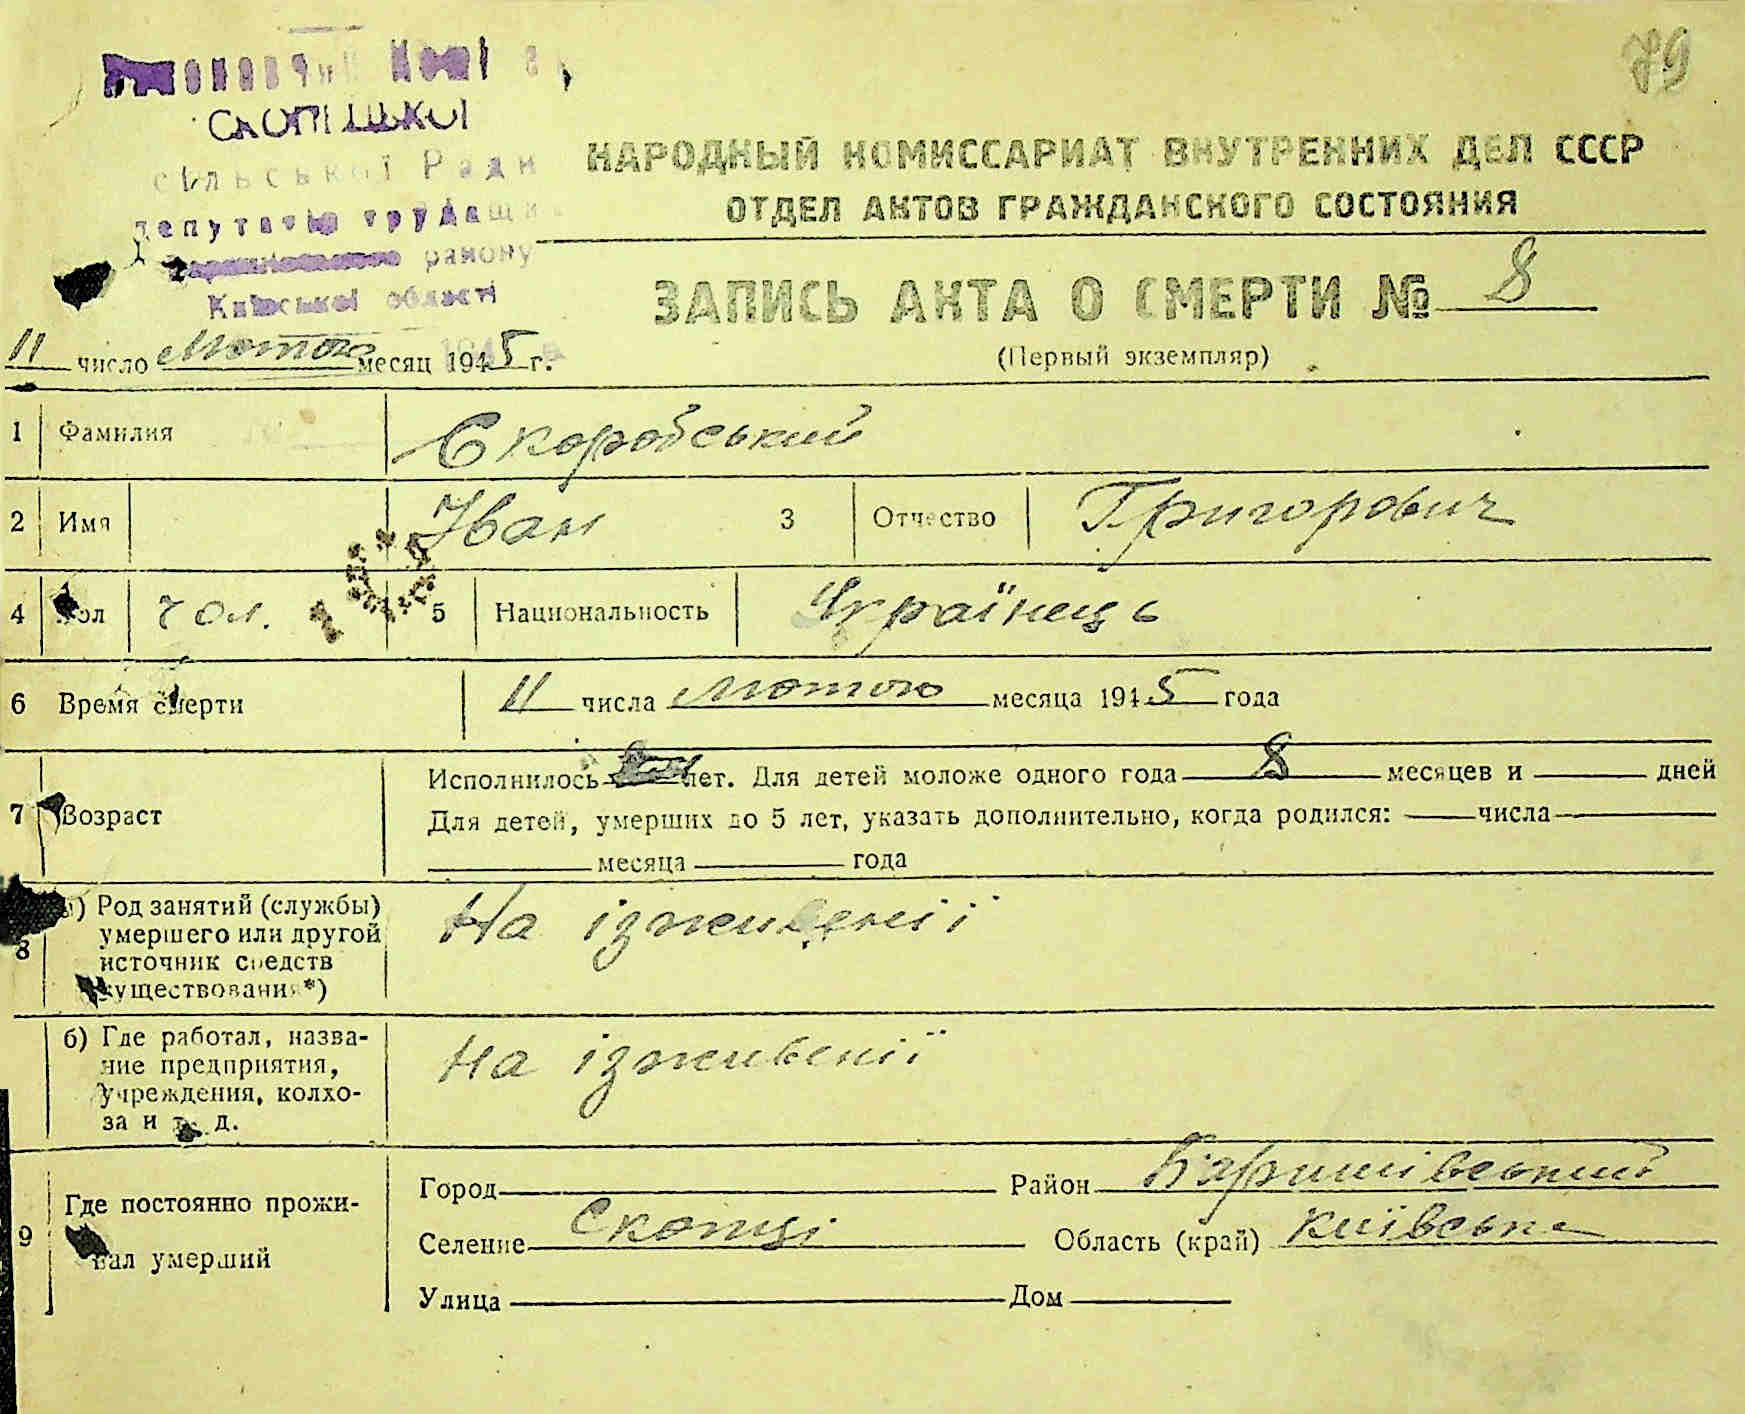 79
СКОПІЦЬКОЇ
сільської Ради
депутатів трудящи
району
Київської області
НАРОДНЫЙ КОМИССАРИАТ ВНУТРЕННИХ ДЕЛ СССР
ОТДЕЛ АКТОВ ГРАЖДАНСКОГО СОСТОЯНИЯ
ЗАПИСЬ АКТА О СМЕРТИ № 8
(Первый экземпляр)
11 число Лютого месяц 1945 г.
1 Фамилия Скоробський
2 Имя Іван 3 Отчество Григорович
4 Пол чол. 5 Национальность Українець
6 Время смерти 11 числа Лютого месяца 1945 года
7 Возраст Исполнилось лет. Для детей моложе одного года 8 месяцев и дней
Для детей, умерших до 5 лет, указать дополнительно, когда родился: числа
месяца года
8 а) Род занятий (службы) умершего или другой источник средств существования*) На іживенії
б) Где работал, название предприятия, учреждения, колхоза и т. д. На іживенії
9 Где постоянно проживал умерший
Город Район Баришівський
Селение Скопці Область (край) Київська
Улица Дом